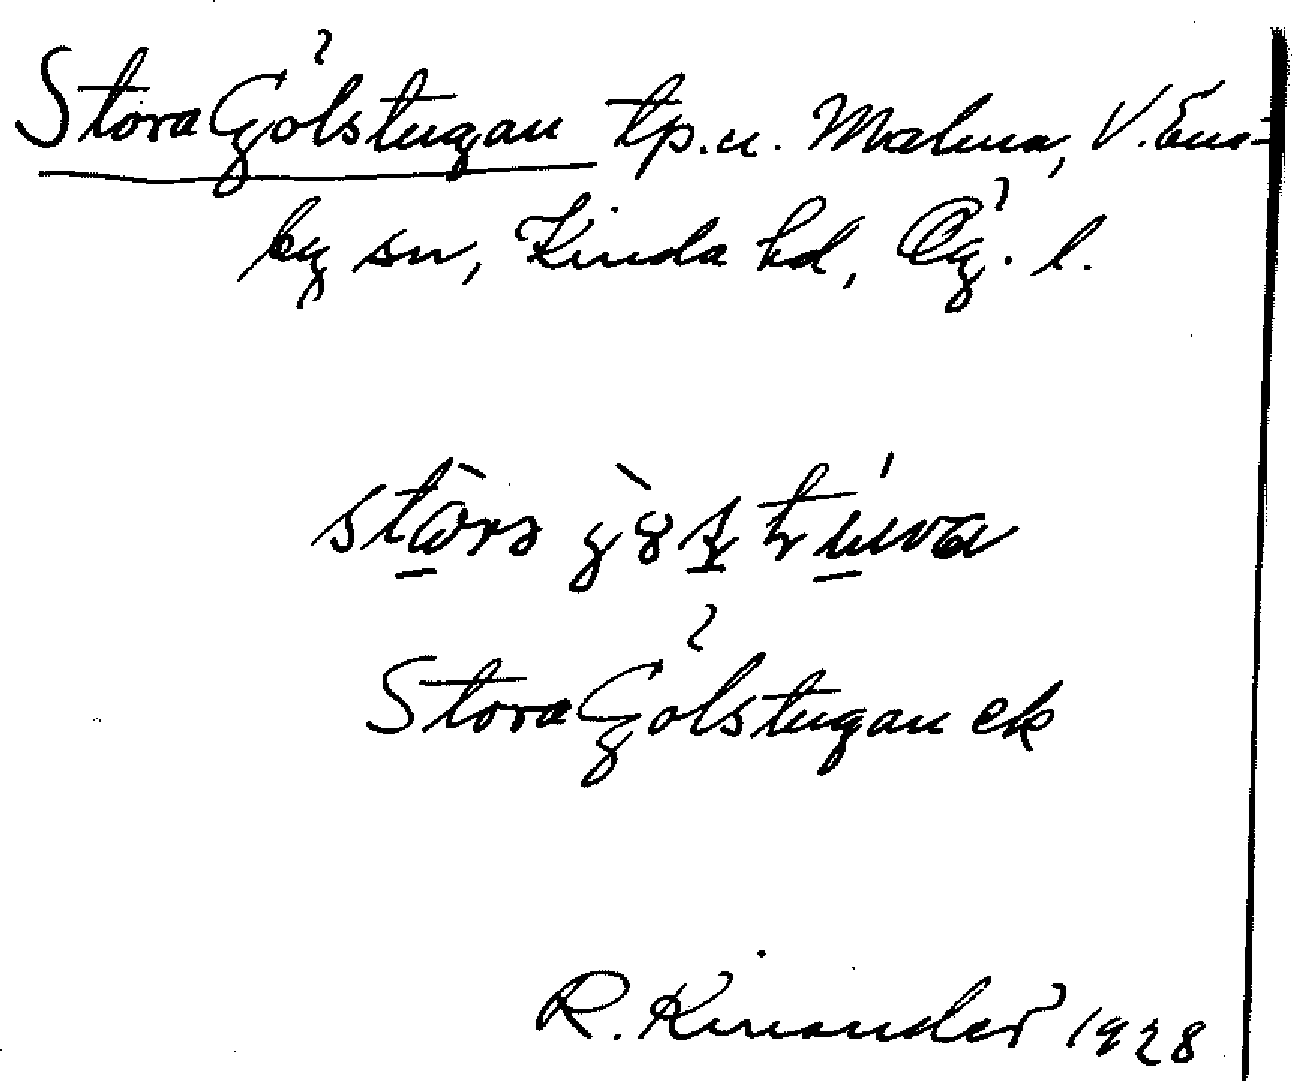 Stora Gölstugan tp.u. Malma, V. Ene-
by sn, Kinda hd, Ög. l.
Stora Gölstugan ek
R. Kinander 1928